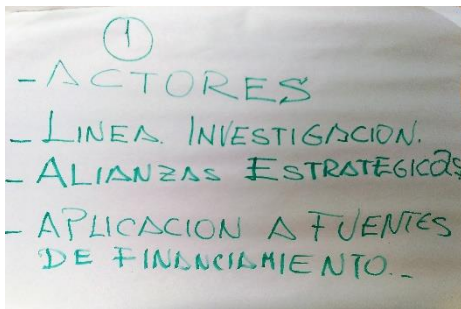 1
- ACTORES
- LINEA. INVESTIGACION.
- ALIANZAS ESTRATEGICAS
- APLICACION A FUENTES
DE FINANCIAMIENTO._